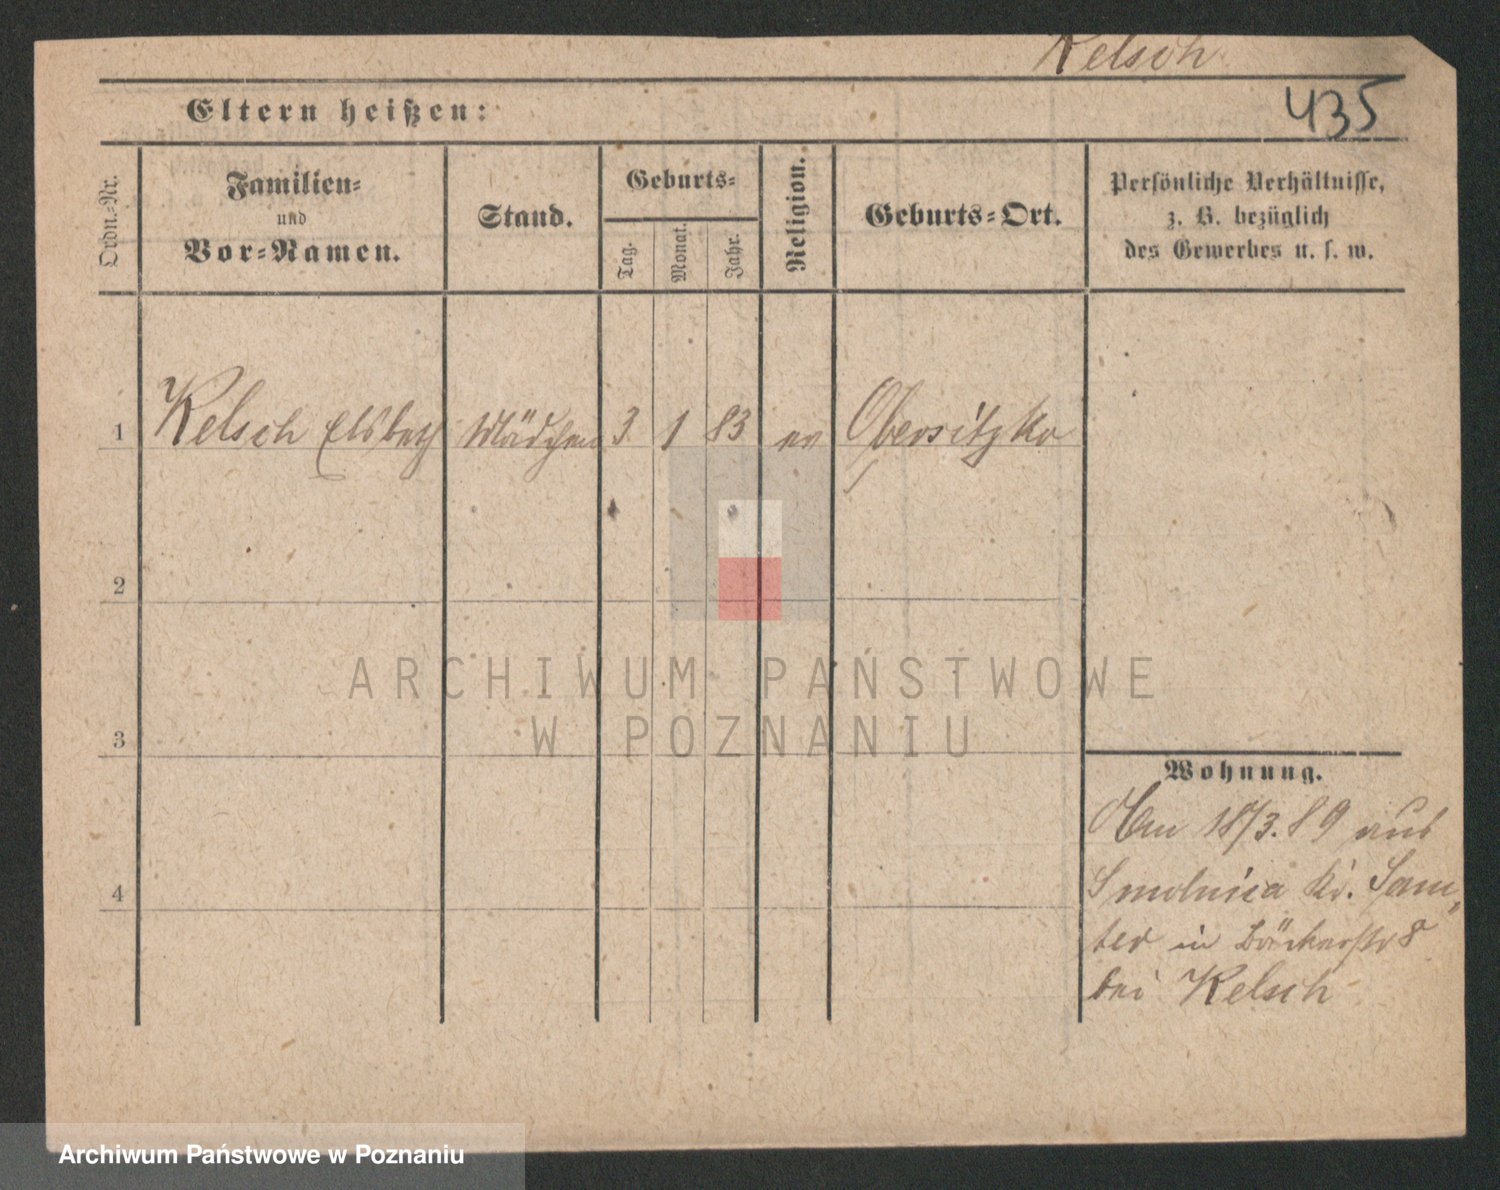 Kelsch
Eltern heißen:
435
Ordn.-Nr.
Familien-
und
Vor-Namen.
Stand.
Geburts-
Tag.
Monat.
Jahr.
Religion.
Geburts-Ort.
Persönliche Verhältnisse,
z. B. bezüglich
des Gewerbes u. s. w.
1 Kelsch Elsbeth Mädchen 3 1 83 ev Obersitzko
2
3
4
ARCHIWUM PAŃSTWOWE
W POZNANIU
Wohnung.
Am 18/3.89 aus
Smolnica Kr. Sam-
ter in Bäckerstr 8
bei Kelsch
Archiwum Państwowe w Poznaniu